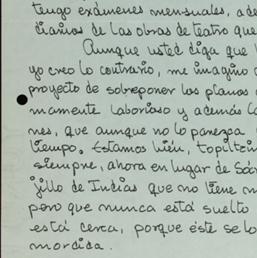 tengo exámenes mensuales, ade
diarios de las obras de teatro que
Aunque usted diga que l
yo creo lo contrario, me imagino
proyecto de sobreponer los planos
mamente laborioso y además l
nes, que aunque no lo parezca
tiempo. Estamos bién,
siempre, ahora en lugar de
jillo de Indias que no tiene n
pero que nunca está suelto
está cerca, porque éste se lo
mordida.